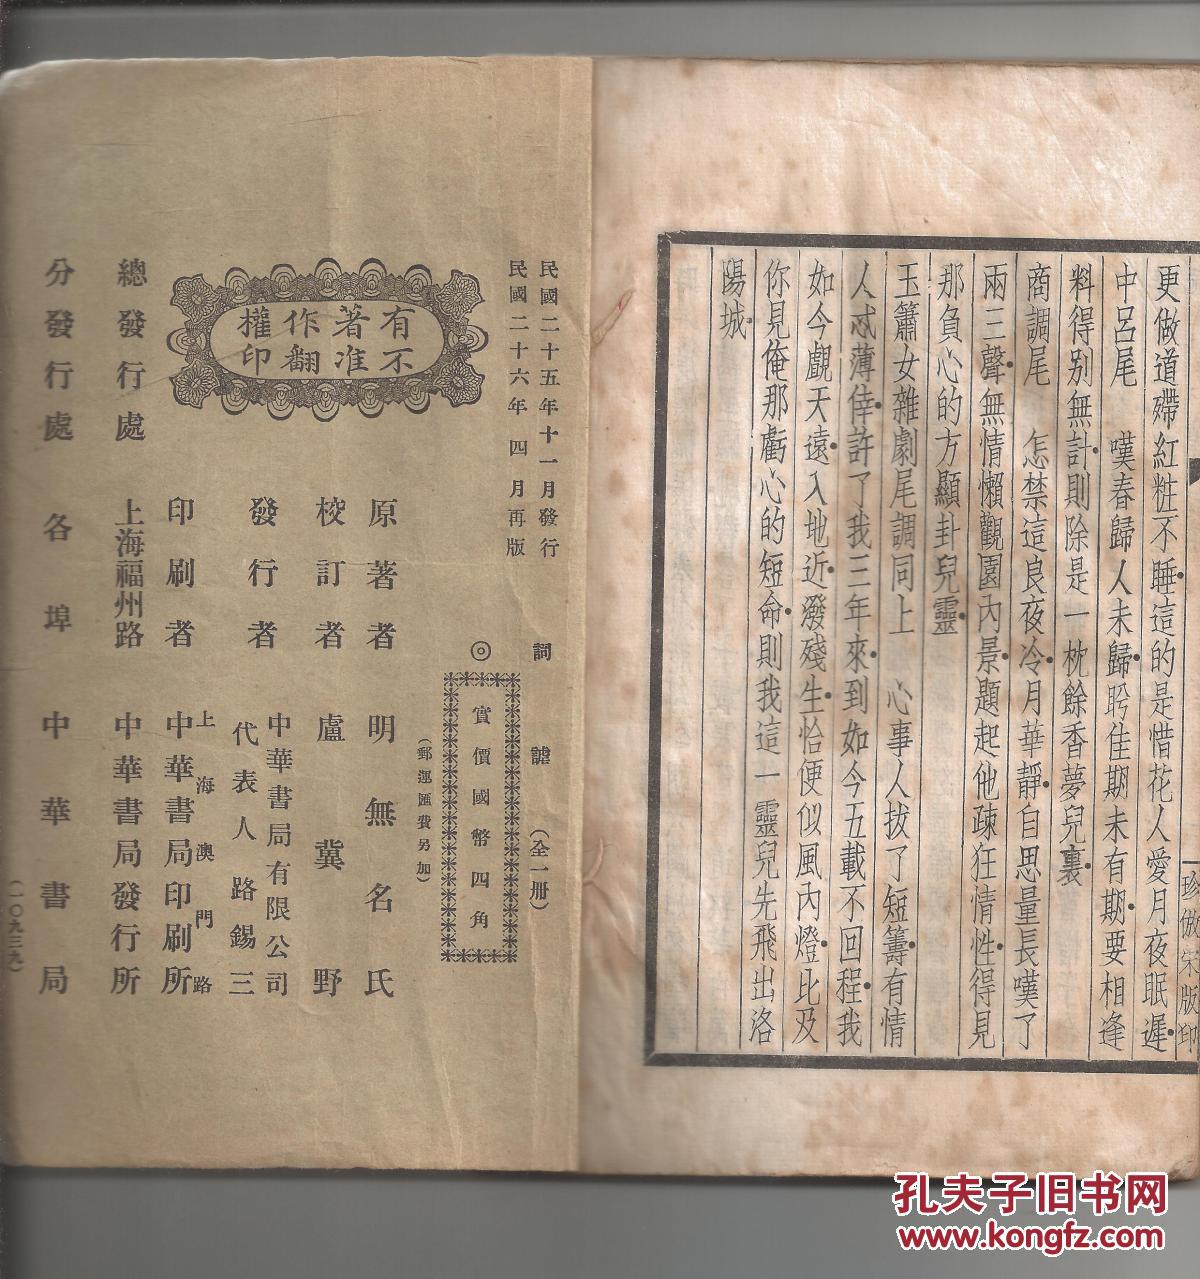 更做道殢紅粧不睡這的是惜花人愛月夜眠遲
中呂尾　嘆春歸人未歸盼佳期未有期要相逢
料得别無計則除是一枕餘香夢兒裏
商調尾　怎禁這良夜冷月華靜自思量長嘆了
兩三聲無情懶觀園內景題起他疎狂情性得見
那負心的方顯卦兒靈
玉簫女雜劇尾調同上　心事人拔了短籌有情
人忒薄倖許了我三年來到如今五載不回程我
如今覷天遠入地近潑殘生恰便似風內燈比及
你見俺那虧心的短命則我這一靈兒先飛出洛
陽城
珍倣宋版印
民國二十五年十一月發行
民國二十六年四月再版
詞謔（全一冊）
◎
實價國幣四角
（郵運匯費另加）
有著作權
不准翻印
原著者　明無名氏
校訂者　盧冀野
發行者　中華書局有限公司
代表人路錫三
印刷者　上海澳門路
中華書局印刷所
總發行處　上海福州路　中華書局發行所
分發行處　各埠　中華書局
（一〇九三九）
孔夫子旧书网
www.kongfz.com